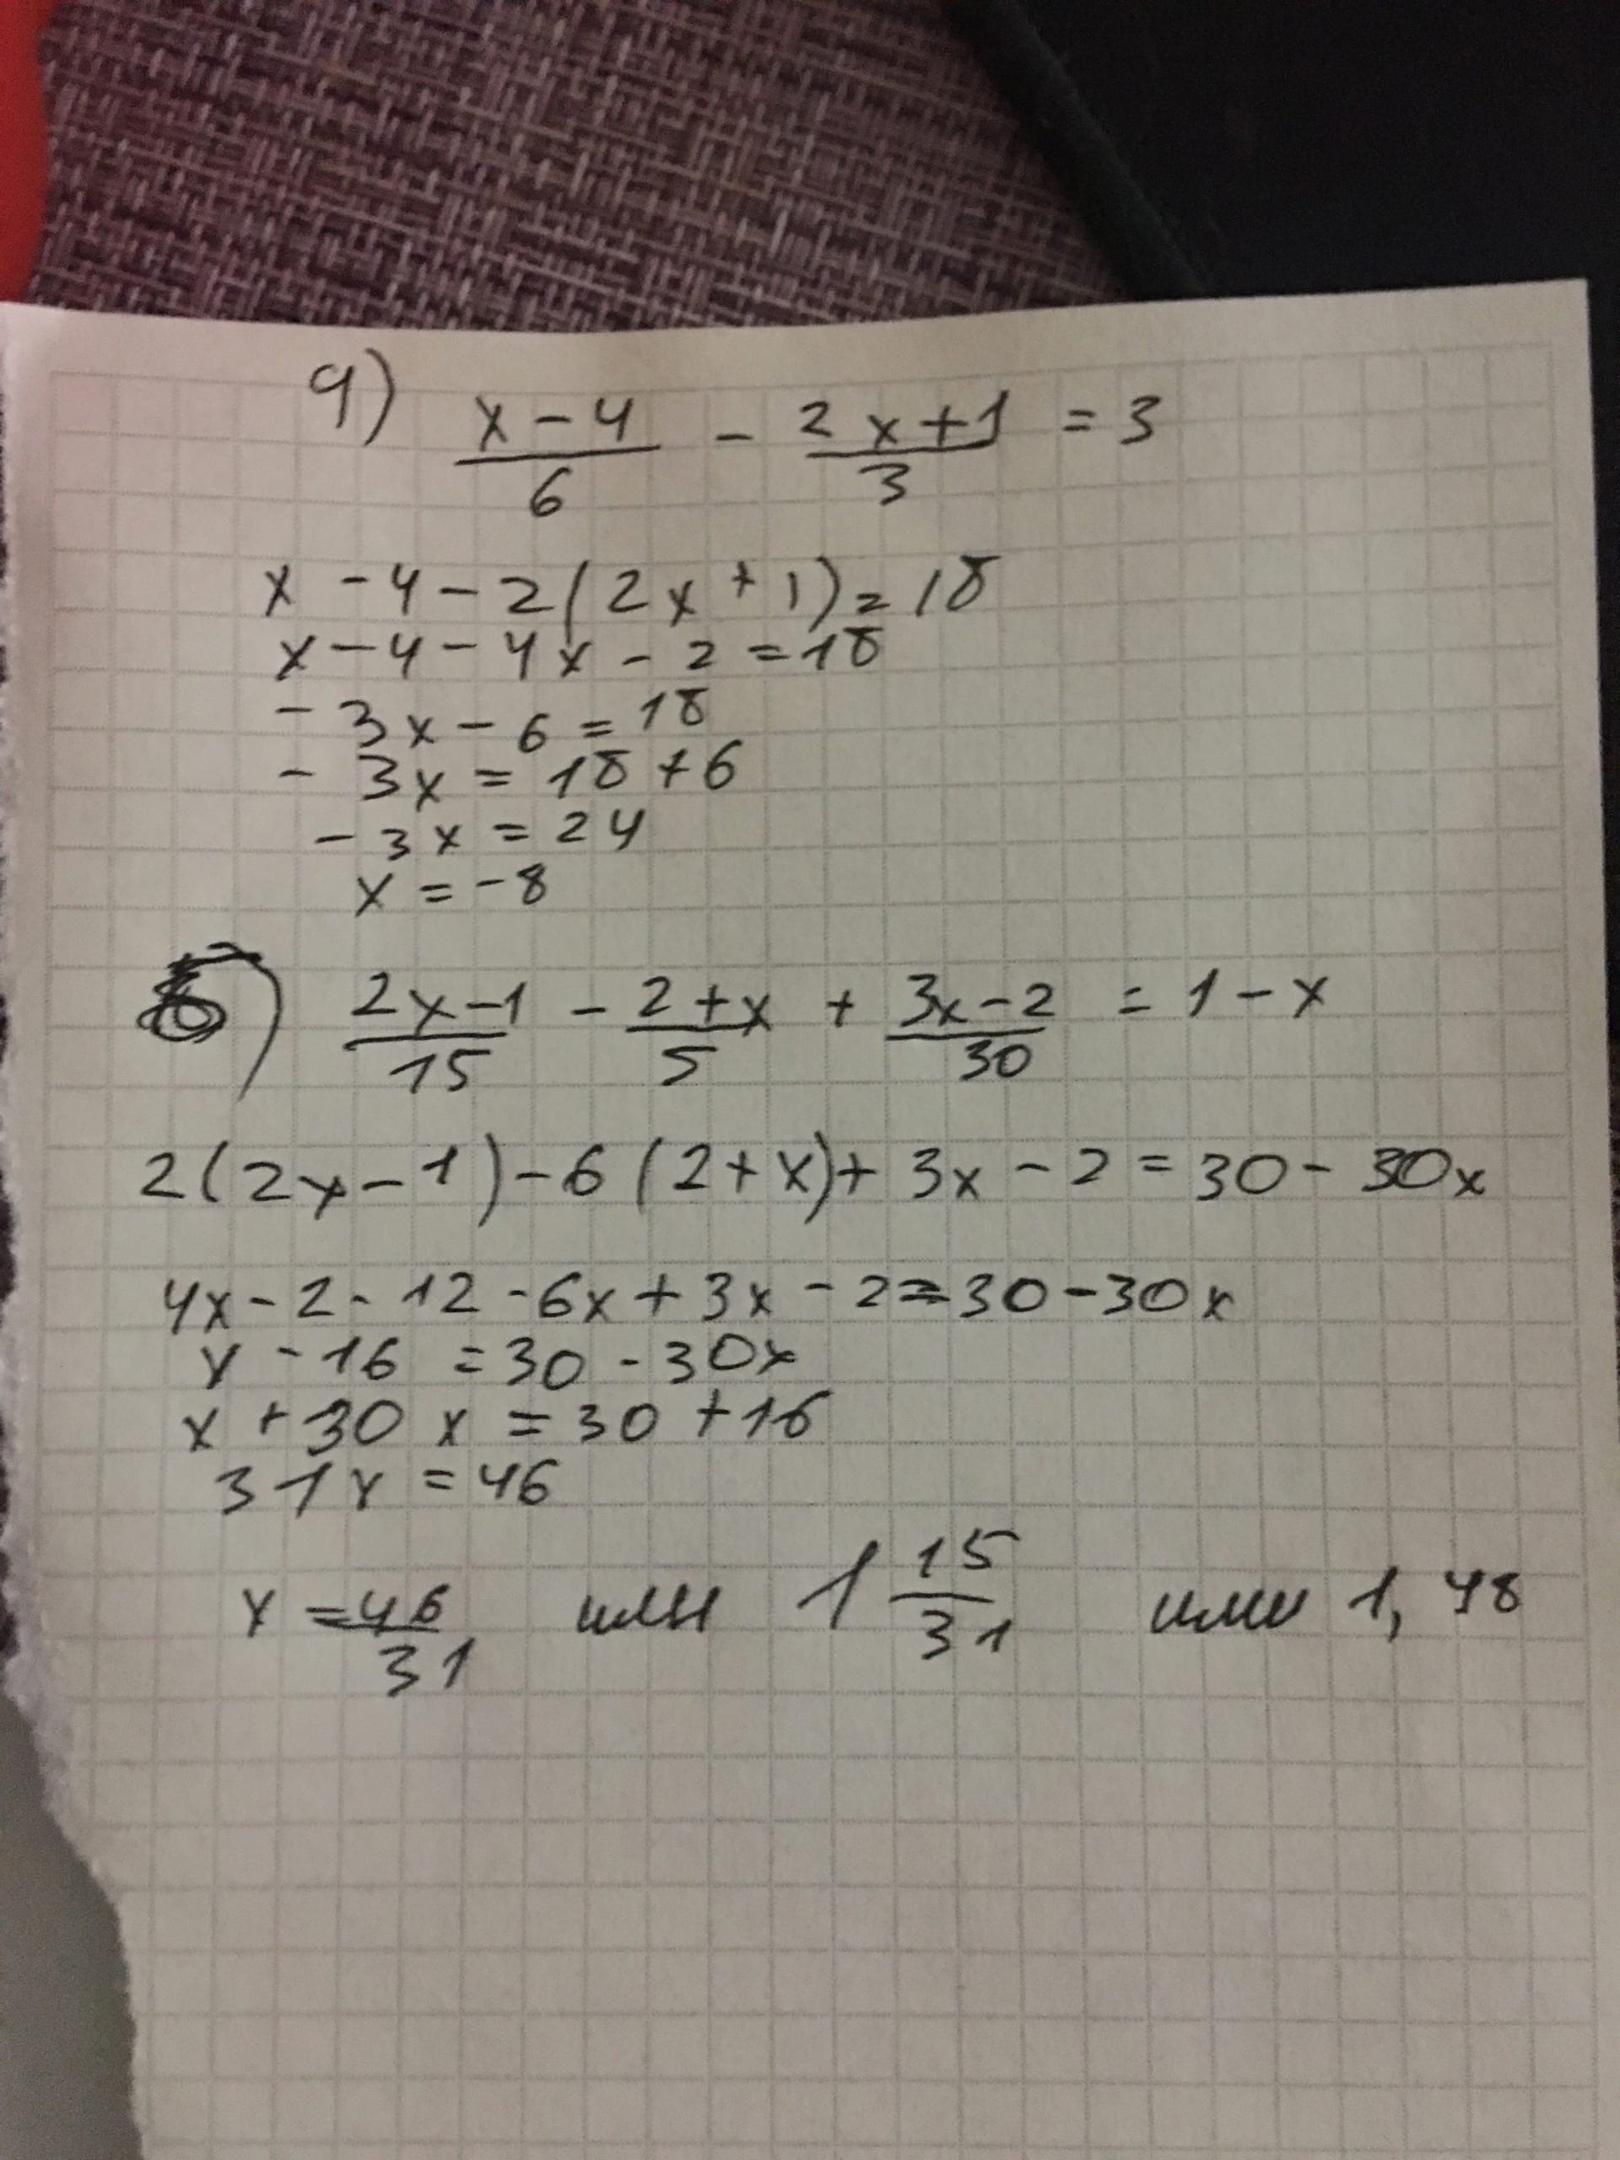 а) x-4/6 - 2x+1/3 = 3
x - 4 - 2(2x + 1) = 18
x - 4 - 4x - 2 = 18
- 3x - 6 = 18
- 3x = 18 + 6
- 3x = 24
x = -8
б) 2x-1/15 - 2+x/5 + 3x-2/30 = 1 - x
2(2x-1) - 6(2+x) + 3x - 2 = 30 - 30x
4x - 2 - 12 - 6x + 3x - 2 = 30 - 30x
x - 16 = 30 - 30x
x + 30x = 30 + 16
31x = 46
x = 46/31 или 1 15/31 или 1,48